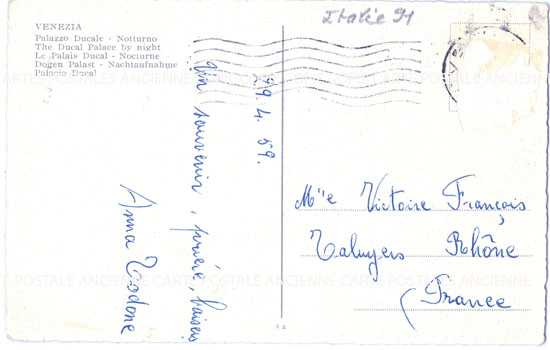 Italie 91
VENEZIA
Palazzo Ducale - Notturno
The Ducal Palace by night
Le Palais Ducal - Nocturne
Dogen Palast - Nachtaufnahme
Palacio Ducal
29.4.59.
Un souvenir, baisers
Anna
CARTE POSTALE ANCIENNE CARTE POSTALE ANCIENNE
Mlle Victoire François
Taluyers Rhône
France
9 A